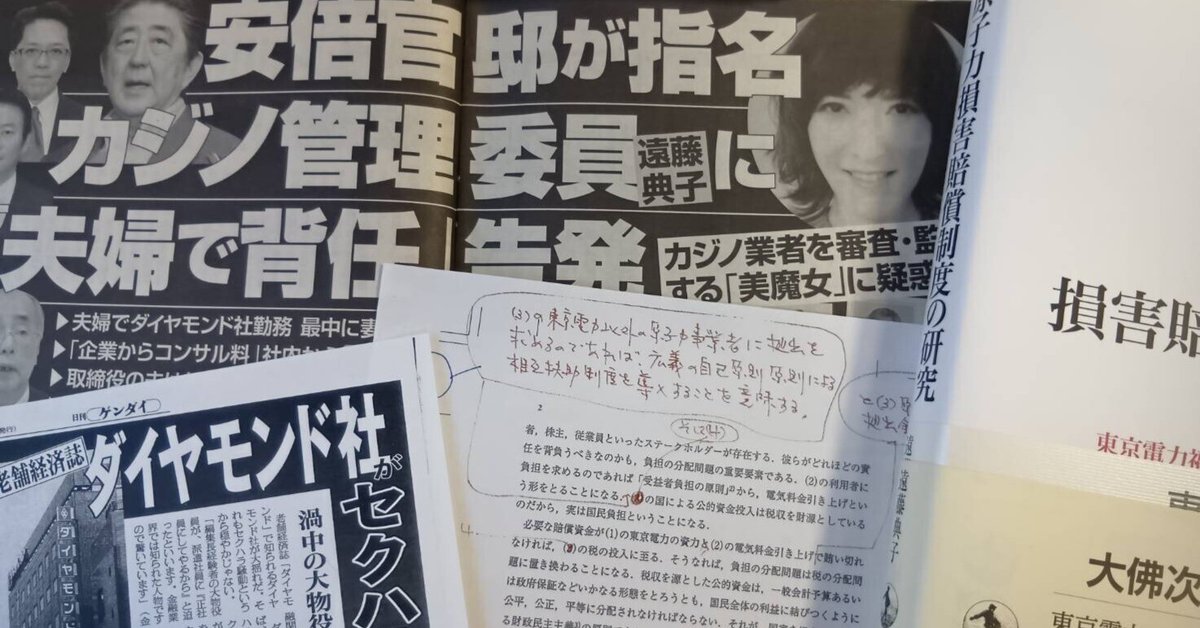 安倍官邸が指名
カジノ管理委員
遠藤
典子
に
夫婦で背任
告発
カジノ業者を審査・監
する「美魔女」に疑惑
▶夫婦でダイヤモンド社勤務 最中に
▶「企業からコンサル料」社内
▶取締役の
日刊 ゲンダイ
老舗経済誌
ダイヤモンド社
が
セクハ
渦中の大物役
老舗経済誌「ダイヤモ
ンド」で知られるダイヤ
モンド社が大揺れだ。そ
れもセクハラ騒動という
から穏やかじゃない。
「編集長経験者の大物役
員が、派遣社員に『正社
員にしてやるから』と迫
ったといいます。金融業
界では知られた人物です
ので驚いています」
(3)の東京電力以外の原子力事業者に拠出を
求めるのであれば、広義の自己
相互扶助制度を導入することを意味する。
2
そして(4)
者，株主，従業員といったステークホルダーが存在する．彼らがどれほどの責
任を背負うべきなのかも，負担の分配問題の重要要素である．(2)の利用者に
負担を求めるのであれば「受益者負担の原則」から，電気料金引き上げとい
う形をとることになる．
の国による公的資金投入は税収を財源としている
のだから，実は国民負担ということになる．
必要な賠償資金が(1)の東京電力の資力と(2)の電気料金引き上げで賄い切れ
なければ，
の税の投入に至る．そうなれば，負担の分配問題は税の分配問
題に置き換わることになる．税収を源とした公的資金は，一般会計予算あるい
は政府保証などいかなる形態をとろうとも，国民全体の利益に結びつくように
公平，公正，平等に分配されなければならない．それが，
る財政民主主義
原子力損害賠償制度の研究
遠藤典子
損害賠
東京電力福
大佛次
東京電力